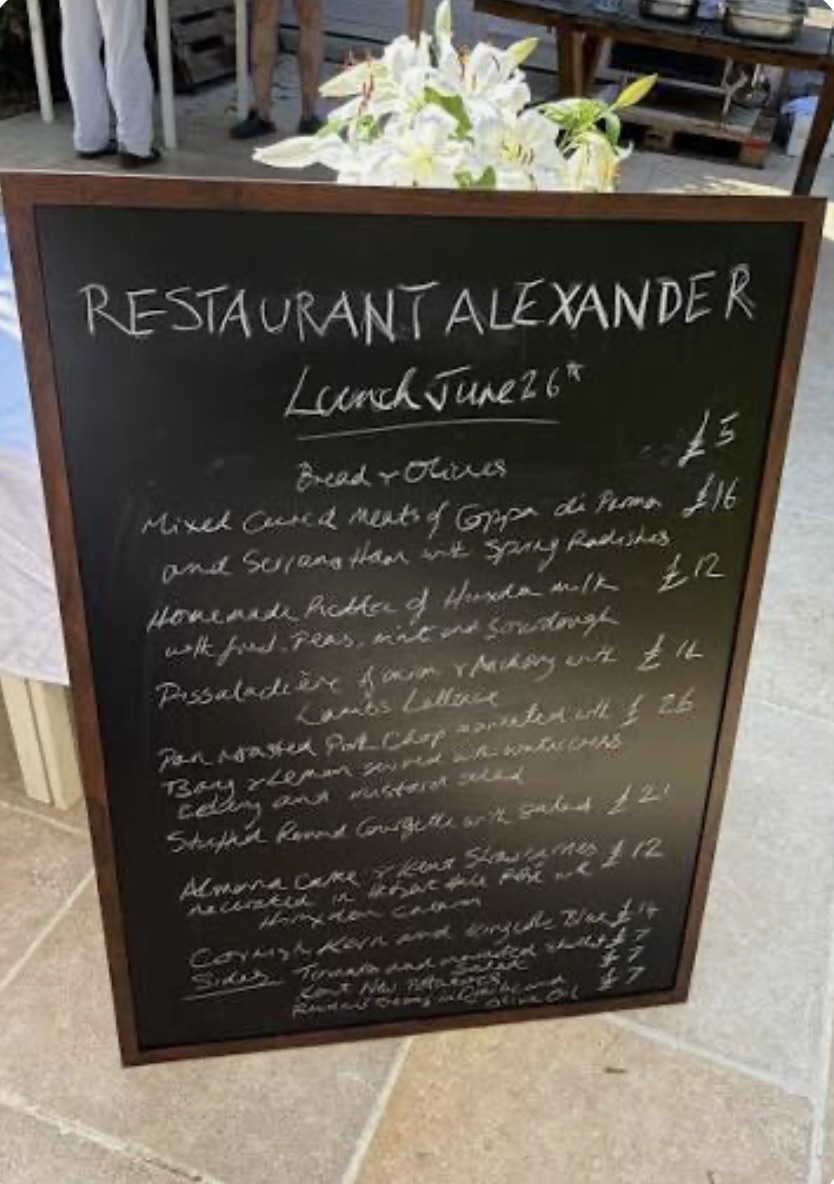 RESTAURANT ALEXANDER
Lunch June 26th
Bread & Olives £5
Mixed Cured Meats of Coppa di Parma £16
and Serrano Ham with Spring Radishes
Homemade Ricotta of Hinxden milk £12
with fried Peas, mint and Sourdough
Pissaladière of onion & Anchovy with
Lambs Lettuce
Pan roasted Pork Chop marinated with £26
Bay & Lemon served with watercress
Celery and mustard salad
Stuffed Round Courgette with salad £21
Almond Cake & Kent Strawberries £12
macerated in Rosé with
Hinxden Cream
Cornish Kern and Blue £14
Sides Tomato and shallot £7
Salad
Kent New Potatoes £7
Beans in and £7
Olive Oil